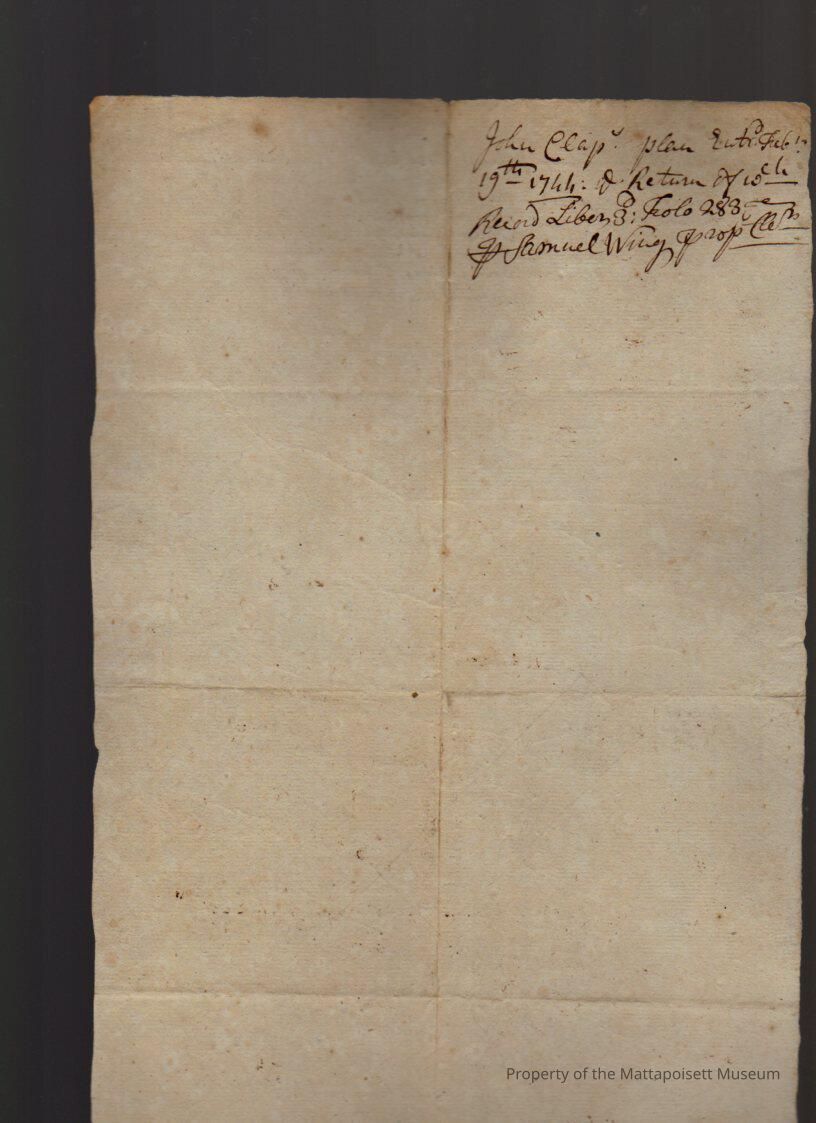 John Clap's plan Entrd Feb
19th 1744: & Return of wch
Record Liber 3d: Folo 283
℔ Samuel Wing prop Cler
Property of the Mattapoisett Museum